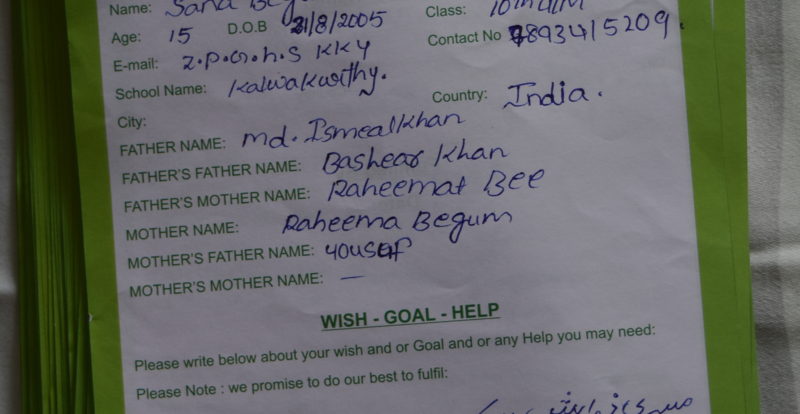 Name: Sana
Class: 10th
Age: 15 D.O.B 21/8/2005
Contact No 7893415209
E-mail: Z.P.G.H.S KKY
School Name: Kalwakurthy.
City: Country: India.
FATHER NAME: Md. Ismealkhan
FATHER'S FATHER NAME: Bashear Khan
FATHER'S MOTHER NAME: Raheemat Bee
MOTHER NAME: Raheema Begum
MOTHER'S FATHER NAME: yousuf
MOTHER'S MOTHER NAME: —
WISH - GOAL - HELP
Please write below about your wish and or Goal and or any Help you may need:
Please Note : we promise to do our best to fulfil: